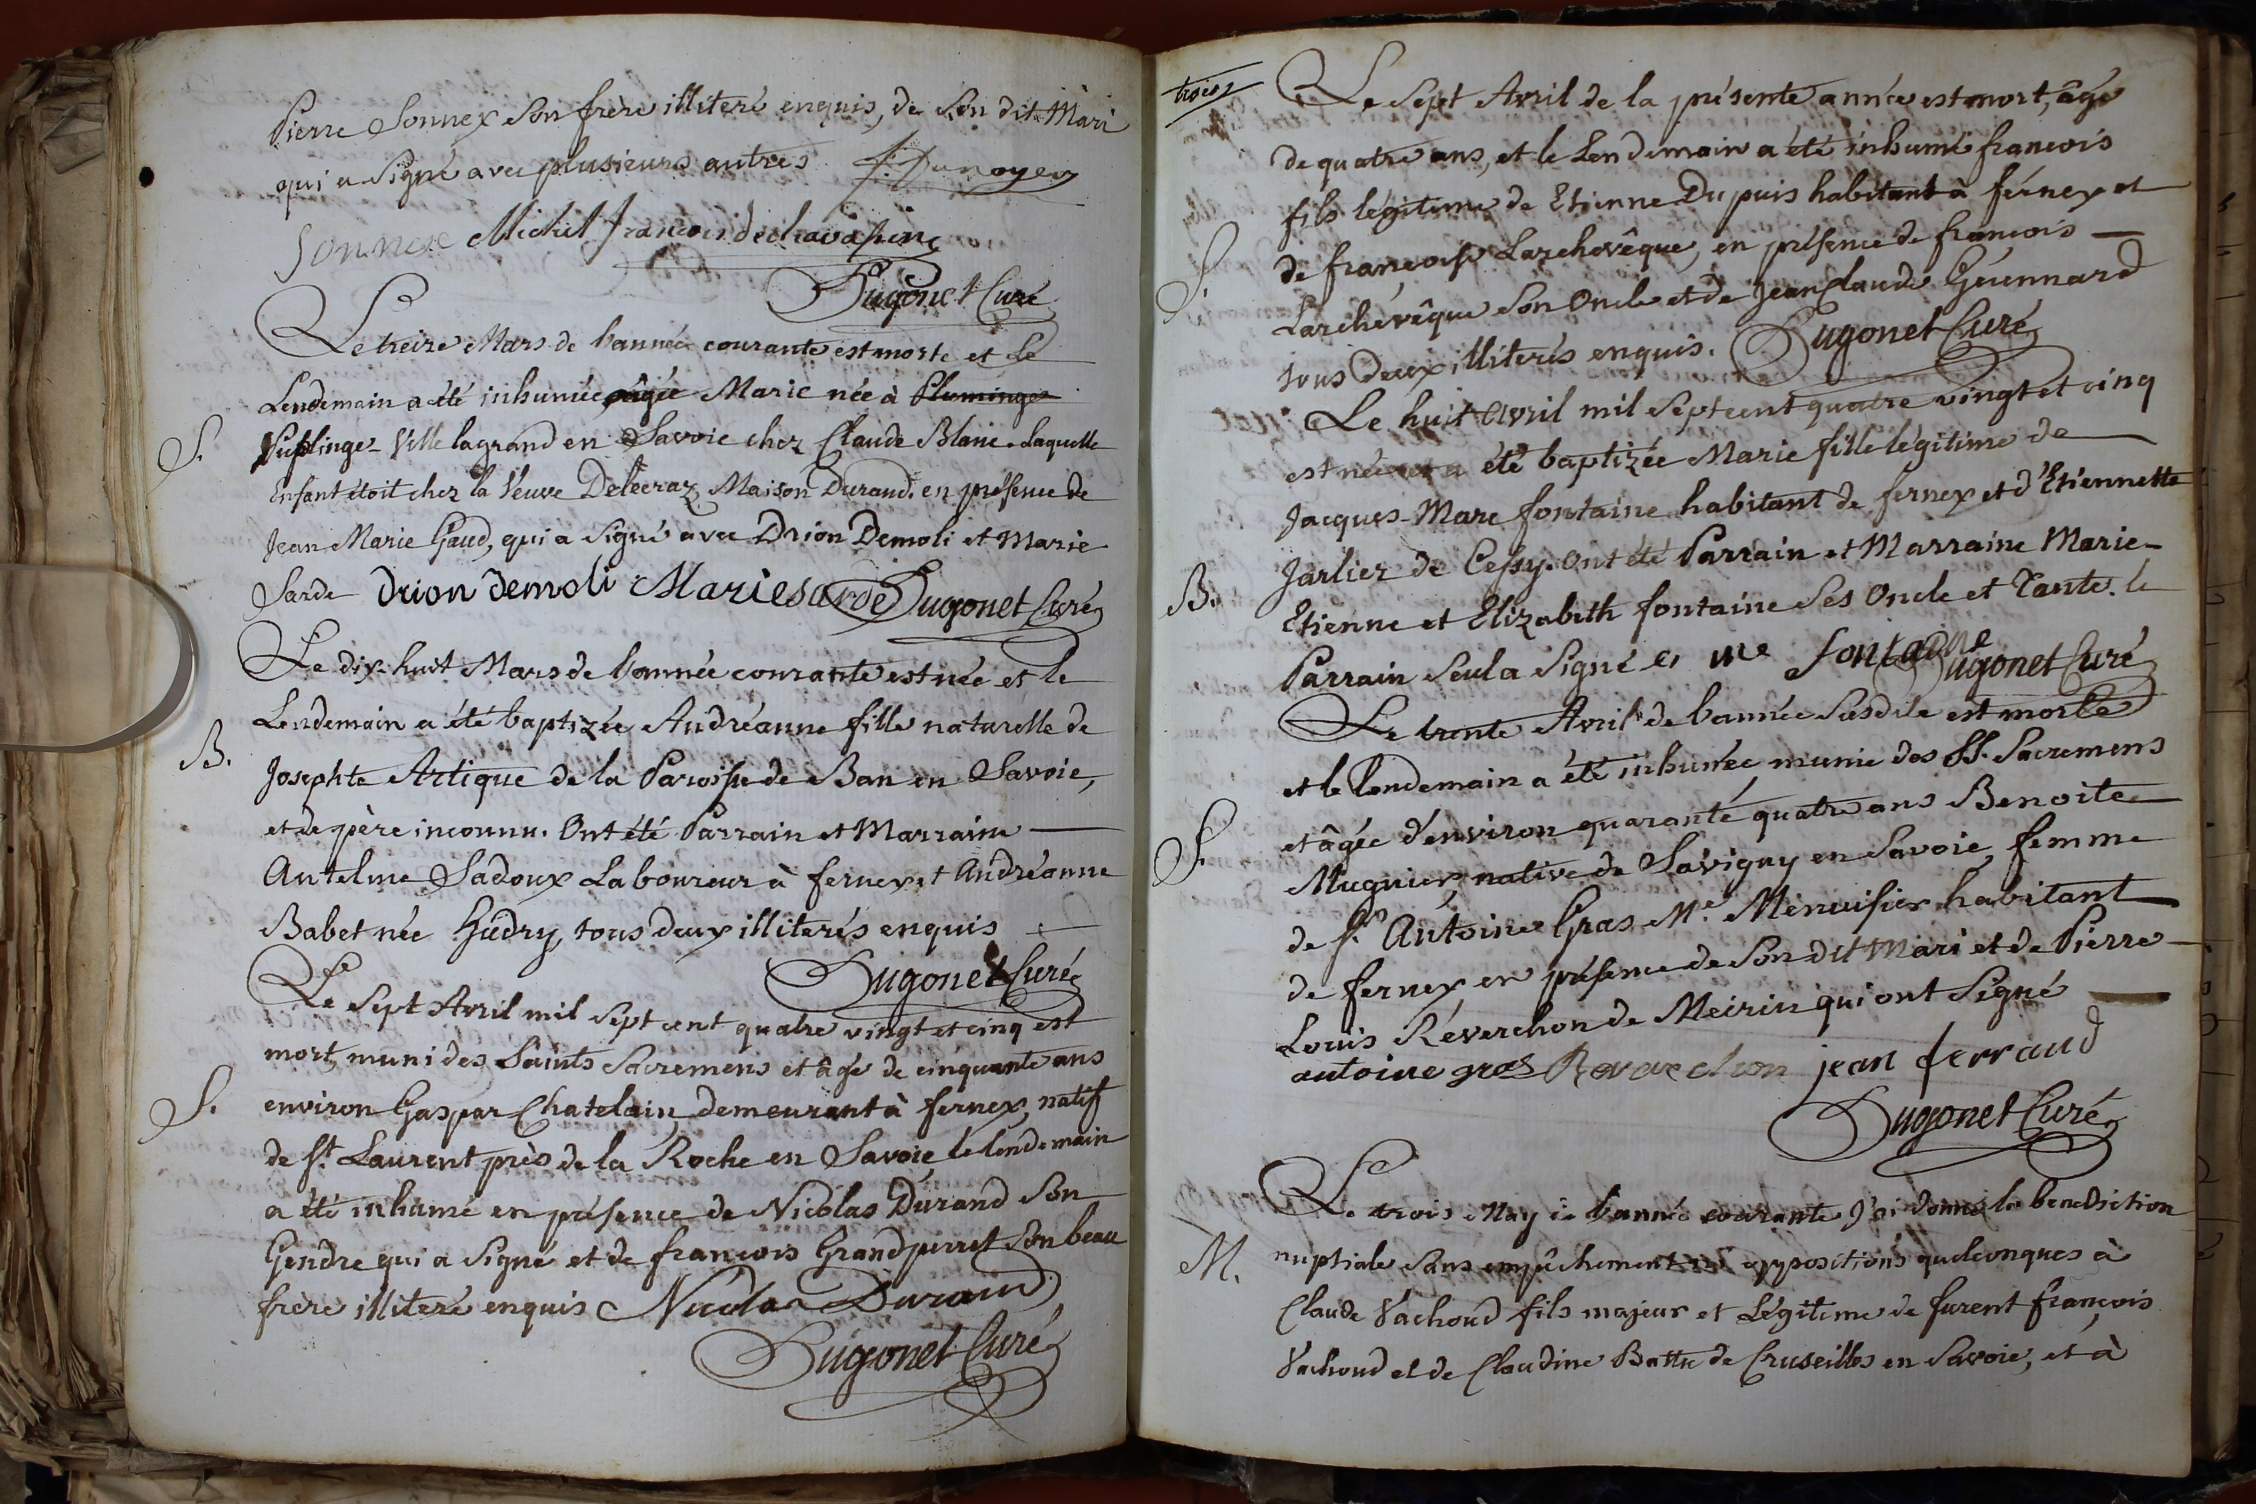 Pierre Sonnex Son frère illiteré enquis, de Son dit Mari
qui a Signé avec plusieurs autres. f: Dunoyer
Sonnex Michel François dechavassine
Hugonet Curé
Le treize Mars de l'année courante est morte et Le
Lendemain a été inhumée âgée Marie née à Pluminge
S. Puplinge - Ville lagrand en Savoie chez Claude Blanc. Laquelle
Enfant étoit chez la Veuve Delécraz Maison Durand. en présence de
Jean Marie Gaud, qui a Signé avec Drion Demoli et Marie
Sarde Drion demoli Marie sarde Hugonet Curé
Le dix-huit Mars de l'année courante est née et le
Lendemain a été baptizée Andréanne fille naturelle de
B. Josephte Artique de la Paroisse de Ban en Savoie,
et de père inconnu. Ont été Parrain et Marraine
Antelme Sadoux Laboureur à fernex et Andréanne
Babet née Gudry, tous deux illiterés enquis
Hugonet Curé
Le Sept Avril mil Sept cent quatre vingt et cinq est
mort, muni des Saints Sacremens et âgé de cinquante ans
S. environ Gaspar Chatelain, demeurant à fernex, natif
de St. Laurent près de la Roche en Savoie le lendemain
a été inhumé en présence de Nicolas Durand Son
Gendre qui a Signé et de françois Grandperret Son beau
frère illiteré enquis Nicolas Durand
Hugonet Curé
trois
Le Sept Avril de la présente année est mort, âgé
de quatre ans, et le Lendemain a été inhumé françois
fils légitime de Etienne Dupuis habitant à férnex et
S. de françoise Larchevêque, en présence de françois
Larchévêque Son Oncle et de Jean Claude Géunnard
tous deux illiterés enquis. Hugonet Curé
Le huit Avril mil Sept cent quatre vingt et cinq
est née et a été baptizée Marie fille légitime de
Jacques-Marc fontaine habitant de fernex et d'Etiennette
B. Jarlier de Cessy. Ont été Parrain et Marraine Marie-
Etienne et Elizabith fontaine Ses Oncle et Tante. le
Parrain Seul a Signé me fontaine Hugonet Curé
Le trente Avril de l'année Susdite est morte
et le lendemain a été inhumée munie des SS. Sacremens
S. et âgée d'environ quarante quatre ans Benoite
Mugnier, native de Savigny en Savoie femme
de Sr. Antoine Gras Me. Menuisier habitant
de fernex en présence de Son dit Mari et de Pierre
Louis Réverchon de Meirin qui ont Signé
antoine gras Revarchon jean ferraud
Hugonet Curé
Le trois May de l'année courante J'ai donné la benediction
M. nuptiale Sans empêchement ni oppositions quelconques à
Claude Vachoud fils majeur et Légitime de furent françois
Vachoud et de Claudine Battu de Cruseilles en Savoie, et à